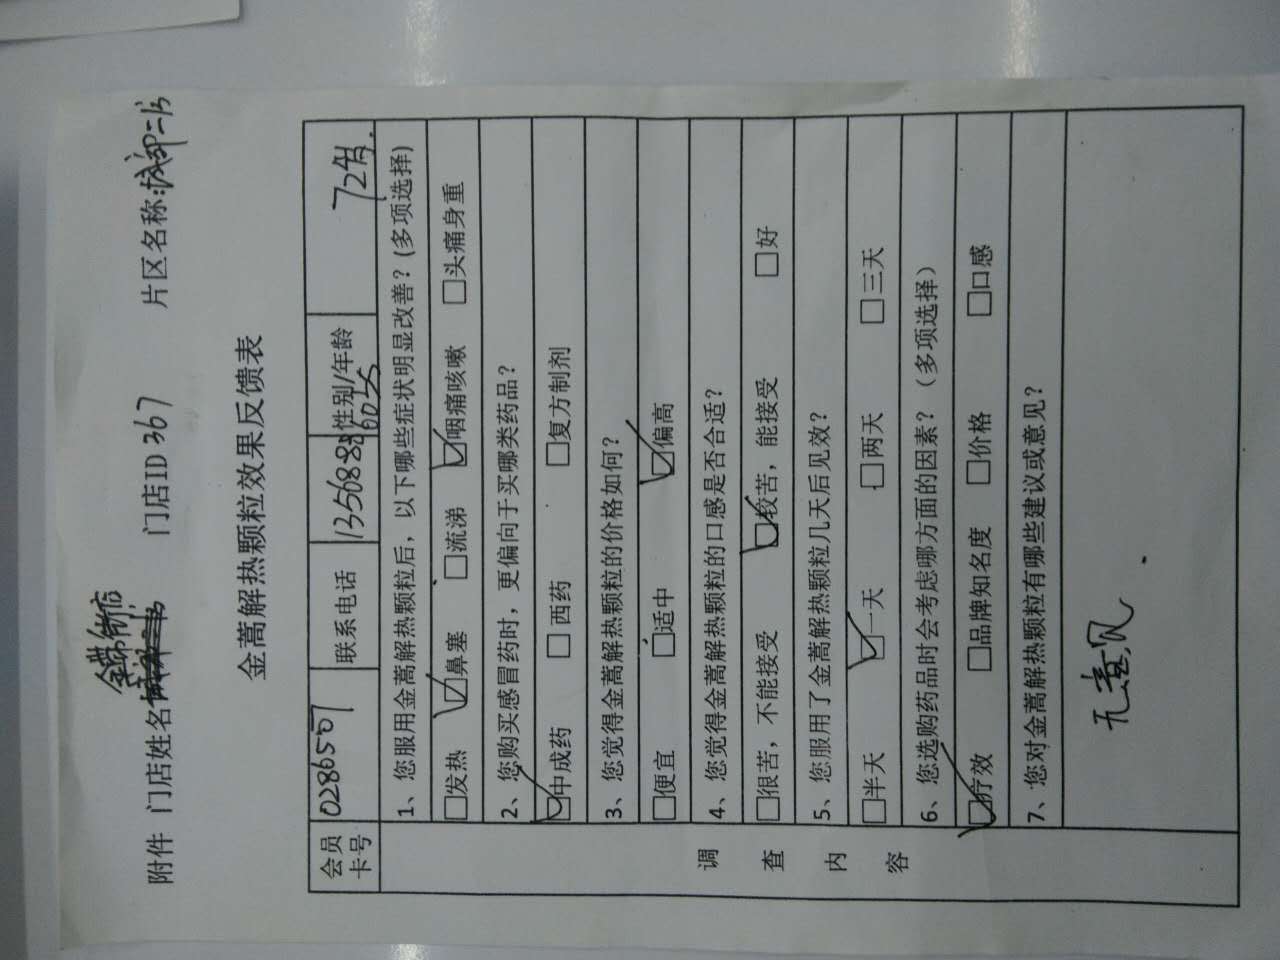 附件 门店姓名 门店ID 367 片区名称:城郊二片
金蒿解热颗粒效果反馈表
会员卡号 0286507 联系电话 1350888 6055 性别/年龄 72岁.
调查内容
1、您服用金蒿解热颗粒后，以下哪些症状明显改善？(多项选择)
□发热 ☑鼻塞 □流涕 ☑咽痛咳嗽 □头痛身重
2、您购买感冒药时，更偏向于买哪类药品？
☑中成药 □ 西药 □复方制剂
3、您觉得金蒿解热颗粒的价格如何？
□便宜 □适中 ☑偏高
4、您觉得金蒿解热颗粒的口感是否合适？
□很苦，不能接受 ☑较苦，能接受 □好
5、您服用了金蒿解热颗粒几天后见效？
□半天 ☑一天 □两天 □三天
6、您选购药品时会考虑哪方面的因素？（多项选择）
☑疗效 □品牌知名度 □价格 □口感
7、您对金蒿解热颗粒有哪些建议或意见？
无意见